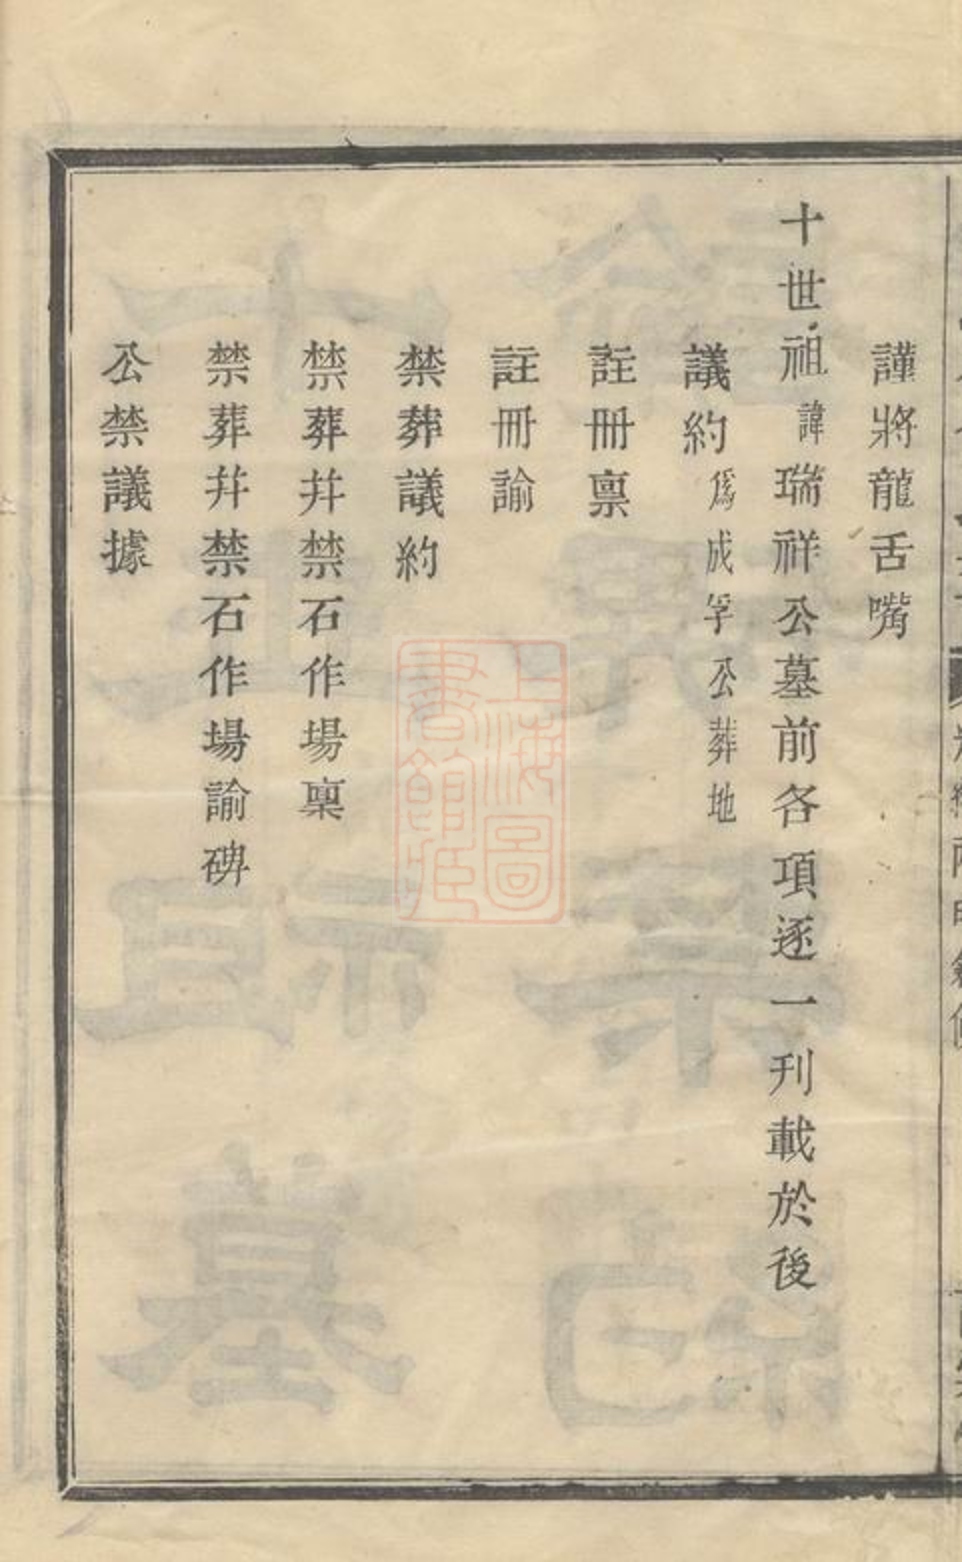 謹將龍舌嘴
十世祖諱瑞祥公墓前各項逐一刊載於後
議約為成孚公葬地
註冊禀
註冊諭
禁葬議約
禁葬并禁石作場禀
禁葬并禁石作場諭碑
公禁議據
上海圖書館藏